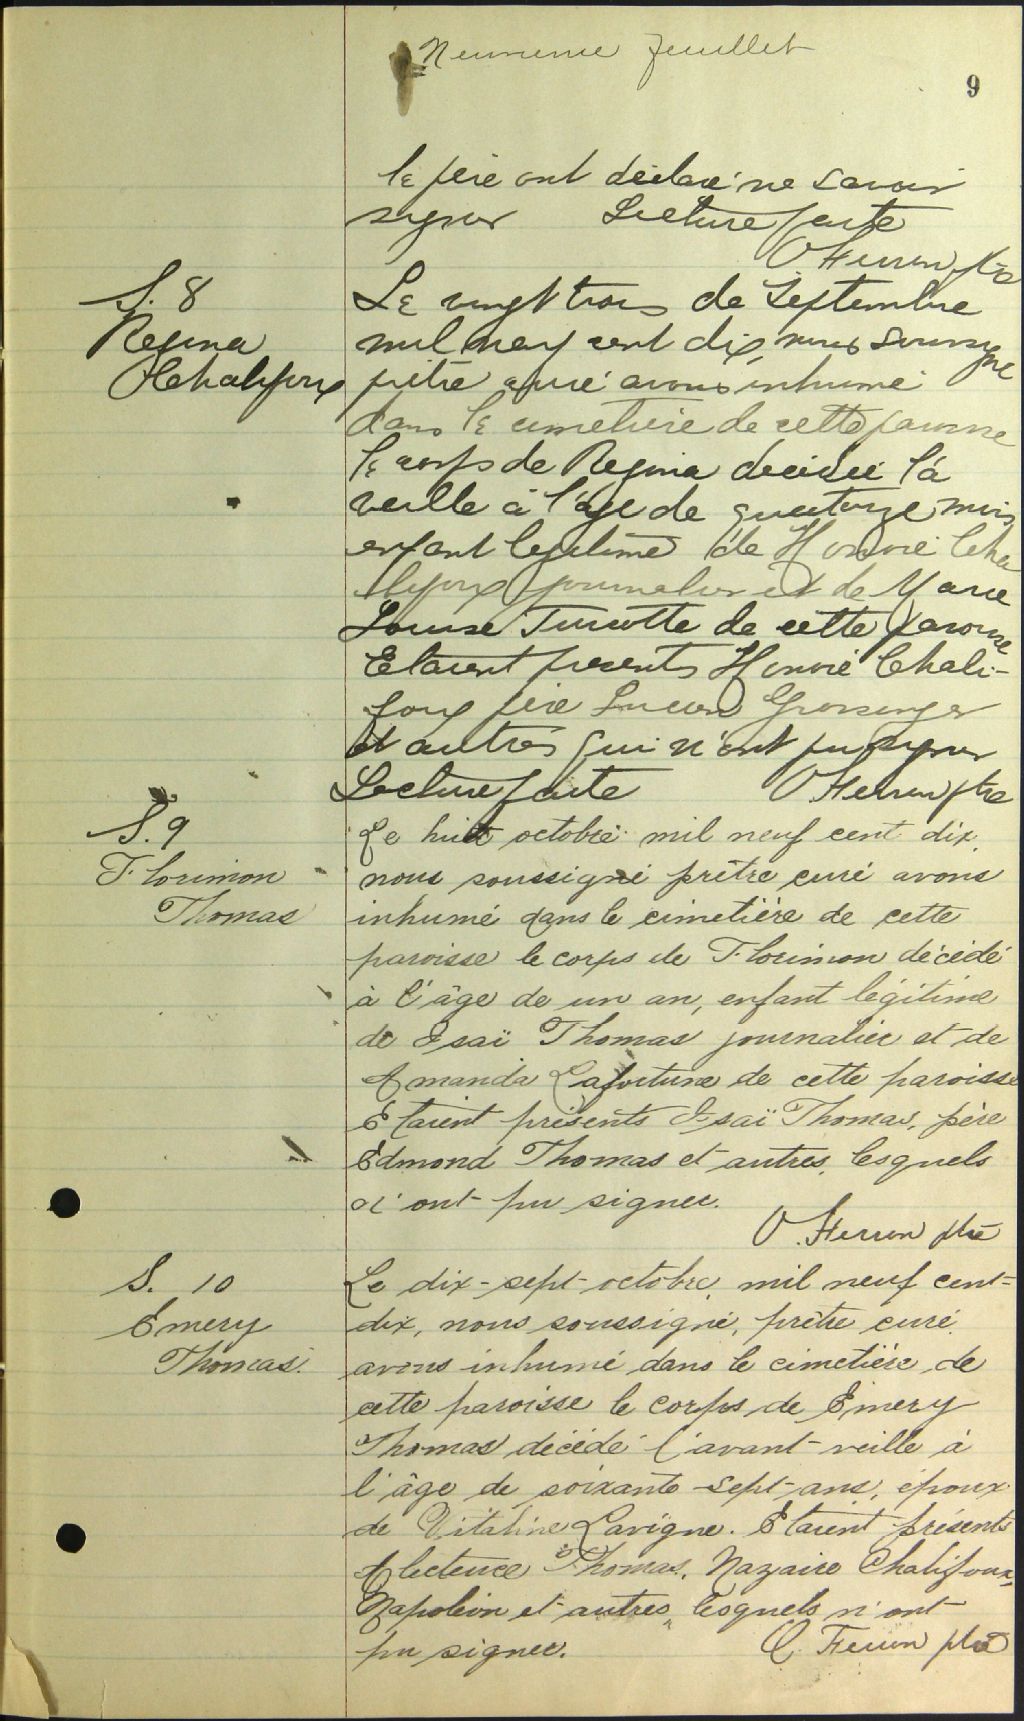 Neuvieme feuillet
9
le père ont déclaré ne savoir
signer Lecture faite
O Ferron ptre
S. 8
Regina
Chalifoux
Le vingt trois de Septembre
mil neuf cent dix, nous soussigné
prêtre curé avons inhumé
dans le cimetière de cette paroisse
le corps de Regina decedée la
veille à l'age de quatorze mois
enfant legitime de Honoré Cha
lifoux journalier et de Marie
Louise Turcotte de cette paroisse
Etaient presents Honoré Chali-
foux père Lucien
et autres qui n'ont pu signer
Lecture faite O Ferron ptre
S. 9
Florimon
Thomas
Le huit octobre mil neuf cent dix,
nous soussigné prêtre curé avons
inhumé dans le cimetière de cette
paroisse le corps de Florimon décédé
à l'âge de un an, enfant légitime
de Isaï Thomas journalier et de
Amanda Lafortune de cette paroisse
Etaient présents Isaï Thomas, père
Edmond Thomas et autres, lesquels
n'ont pu signer.
O. Ferron ptre
S. 10
Emery
Thomas.
Le dix-sept octobre, mil neuf cent-
dix, nous soussigné, prêtre curé,
avons inhumé dans le cimetière de
cette paroisse le corps de Emery
Thomas décédé l'avant-veille à
l'âge de soixante-sept-ans, époux
de Vitaline Lavigne. Etaient présents
Thomas, Nazaire Chalifoux,
Napoléon et autres, lesquels n'ont
pu signer. O. Ferron ptre